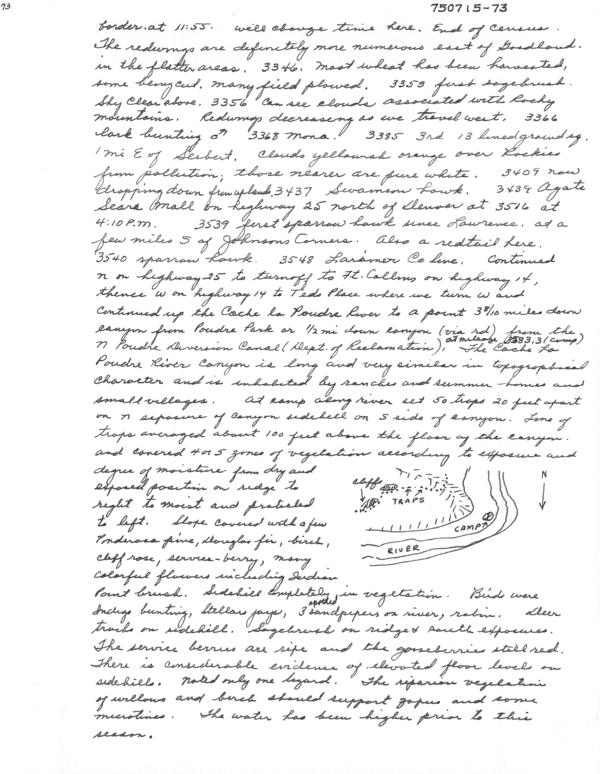 73
750715-73
border at 11:55. will change time here. End of census.
The redwings are definitely more numerous east of Goodland.
in the flatter areas. 3346. most wheat has been harvested,
some being cut, many field plowed. 3353 first sagebrush.
Sky clear above. 3356 can see clouds associated with Rocky
mountains. Redwings decreasing as we travel west. 3366
lark bunting ♂ 3368 Mona. 3385 3rd 13 lined ground sq.
1 mi E of Seibert. Clouds yellowish orange over Rockies
from pollution; those nearer are pure white. 3409 now
dropping down from upland, 3437 Swainson hawk. 3439 Agate
Sears Mall on highway 25 north of Denver at 3516 at
4:10 P.M. 3539 first sparrow hawk since Lawrence. at a
few miles S of Johnsons Corners. Also a redtail here.
3540 sparrow hawk. 3548 Laramer Co line. Continued
n on highway 25 to turnoff to Ft. Collins on highway 14,
thence W on highway 14 to Teds Place where we turn W and
continued up the Cache la Poudre River to a point 3 8/10 miles down
canyon from Poudre Park or 1/2 mi down canyon (via rd) from the
at mileage 3583.3 (camp)
N Poudre Diversion Canal (Dept. of Reclamation). The Cache La
Poudre River Canyon is long and very similar in topographical
character and is inhabited by ranches and summer homes and
small villages. At camp along river set 50 traps 20 feet apart
on N exposure of canyon sidehill on S side of canyon. Line of
traps averaged about 100 feet above the floor of the canyon.
and covered 4 or 5 zones of vegetation according to exposure and
degree of moisture from dry and
exposed position on ridge to
right to moist and protected
to left. Slope covered with a few
Ponderosa pine, douglas fir, birch,
cliff rose, service-berry, many
colorful flowers including Indian
cliff
TRAPS
N
CAMP
RIVER
Paint brush. Sidehill completely in vegetation. Birds were
spotted
Indigo bunting, Stellars jays, 3 sandpipers on river, robin. Deer
tracks on sidehill. Sagebrush on ridge & south exposures.
The service berries are ripe and the gooseberries still red.
There is considerable evidence of elevated floor levels on
sidehills. Noted only one lizard. The riparian vegetation
of willows and birch should support zapus and some
microtines. The water has been higher prior to this
season.